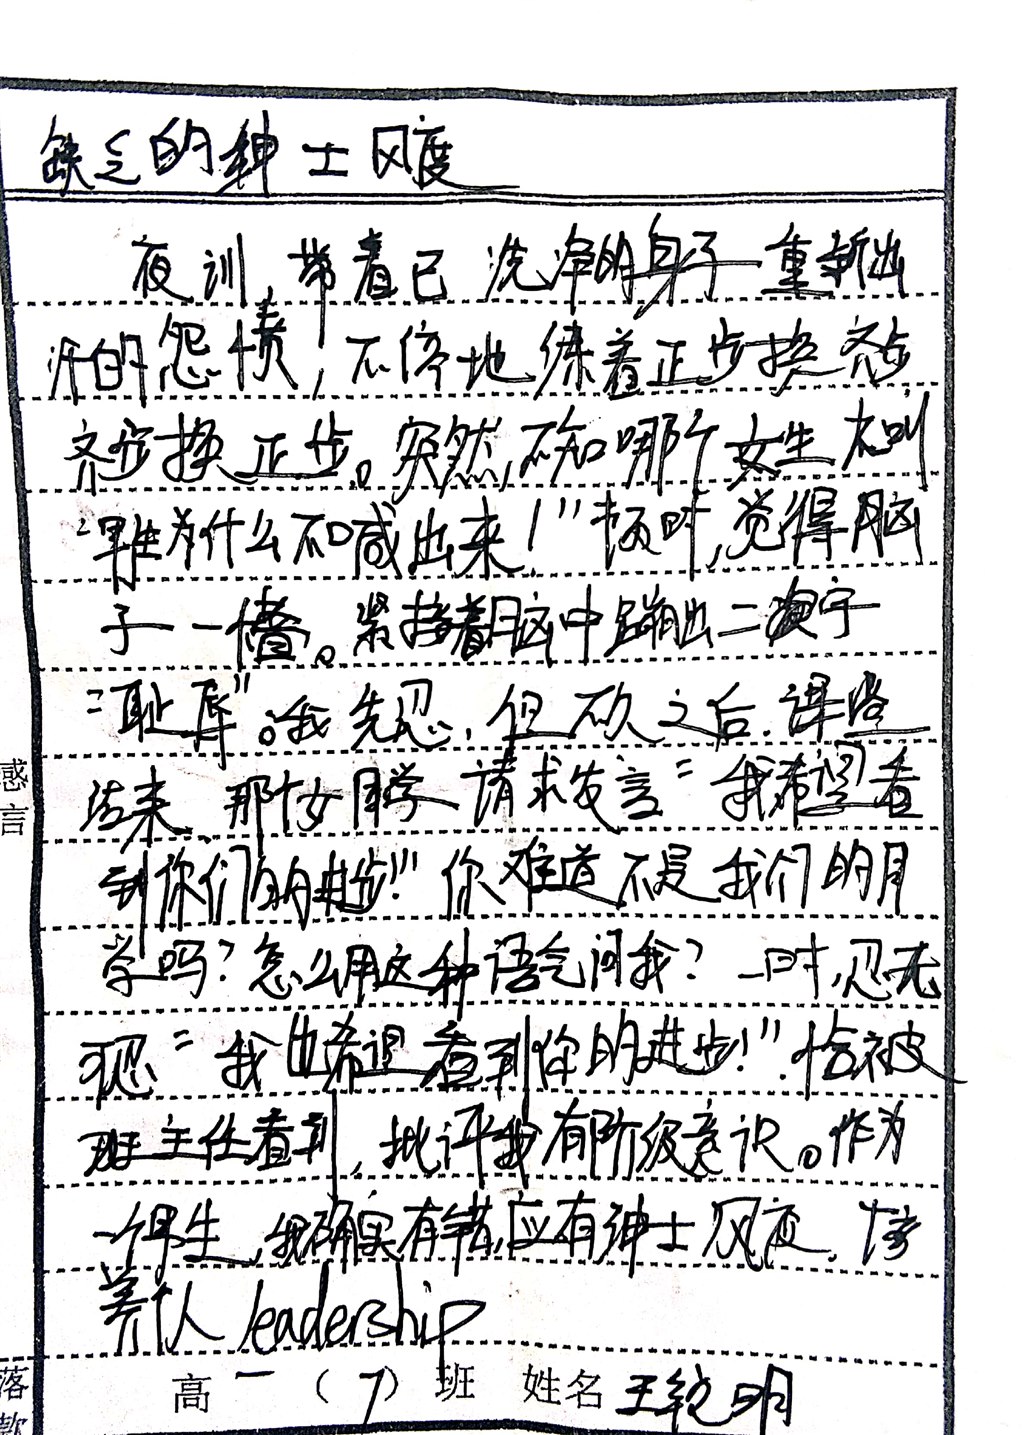 缺乏的绅士风度
夜训,带着已洗净的身子重新出
汗的怨愤,不停地练着正步换齐步
齐步换正步。突然,不知哪个女生大叫
"男生为什么不喊出来!"顿时,觉得脑
子一懵。紧接着脑中蹦出二字
"耻辱"。我先忍,但不久之后,
结束,那个女同学请求发言"我希望看
到你们的进步!"你难道不是我们的同
学吗?怎么用这种语气问我?一时,忍无
可忍"我也希望看到你的进步!".恰被
班主任看到,批评我有阶级意识。作为
一个男生,我确实有错,应有绅士风度,培
养个人leadership
感言
落款
高一(7)班 姓名王锐明